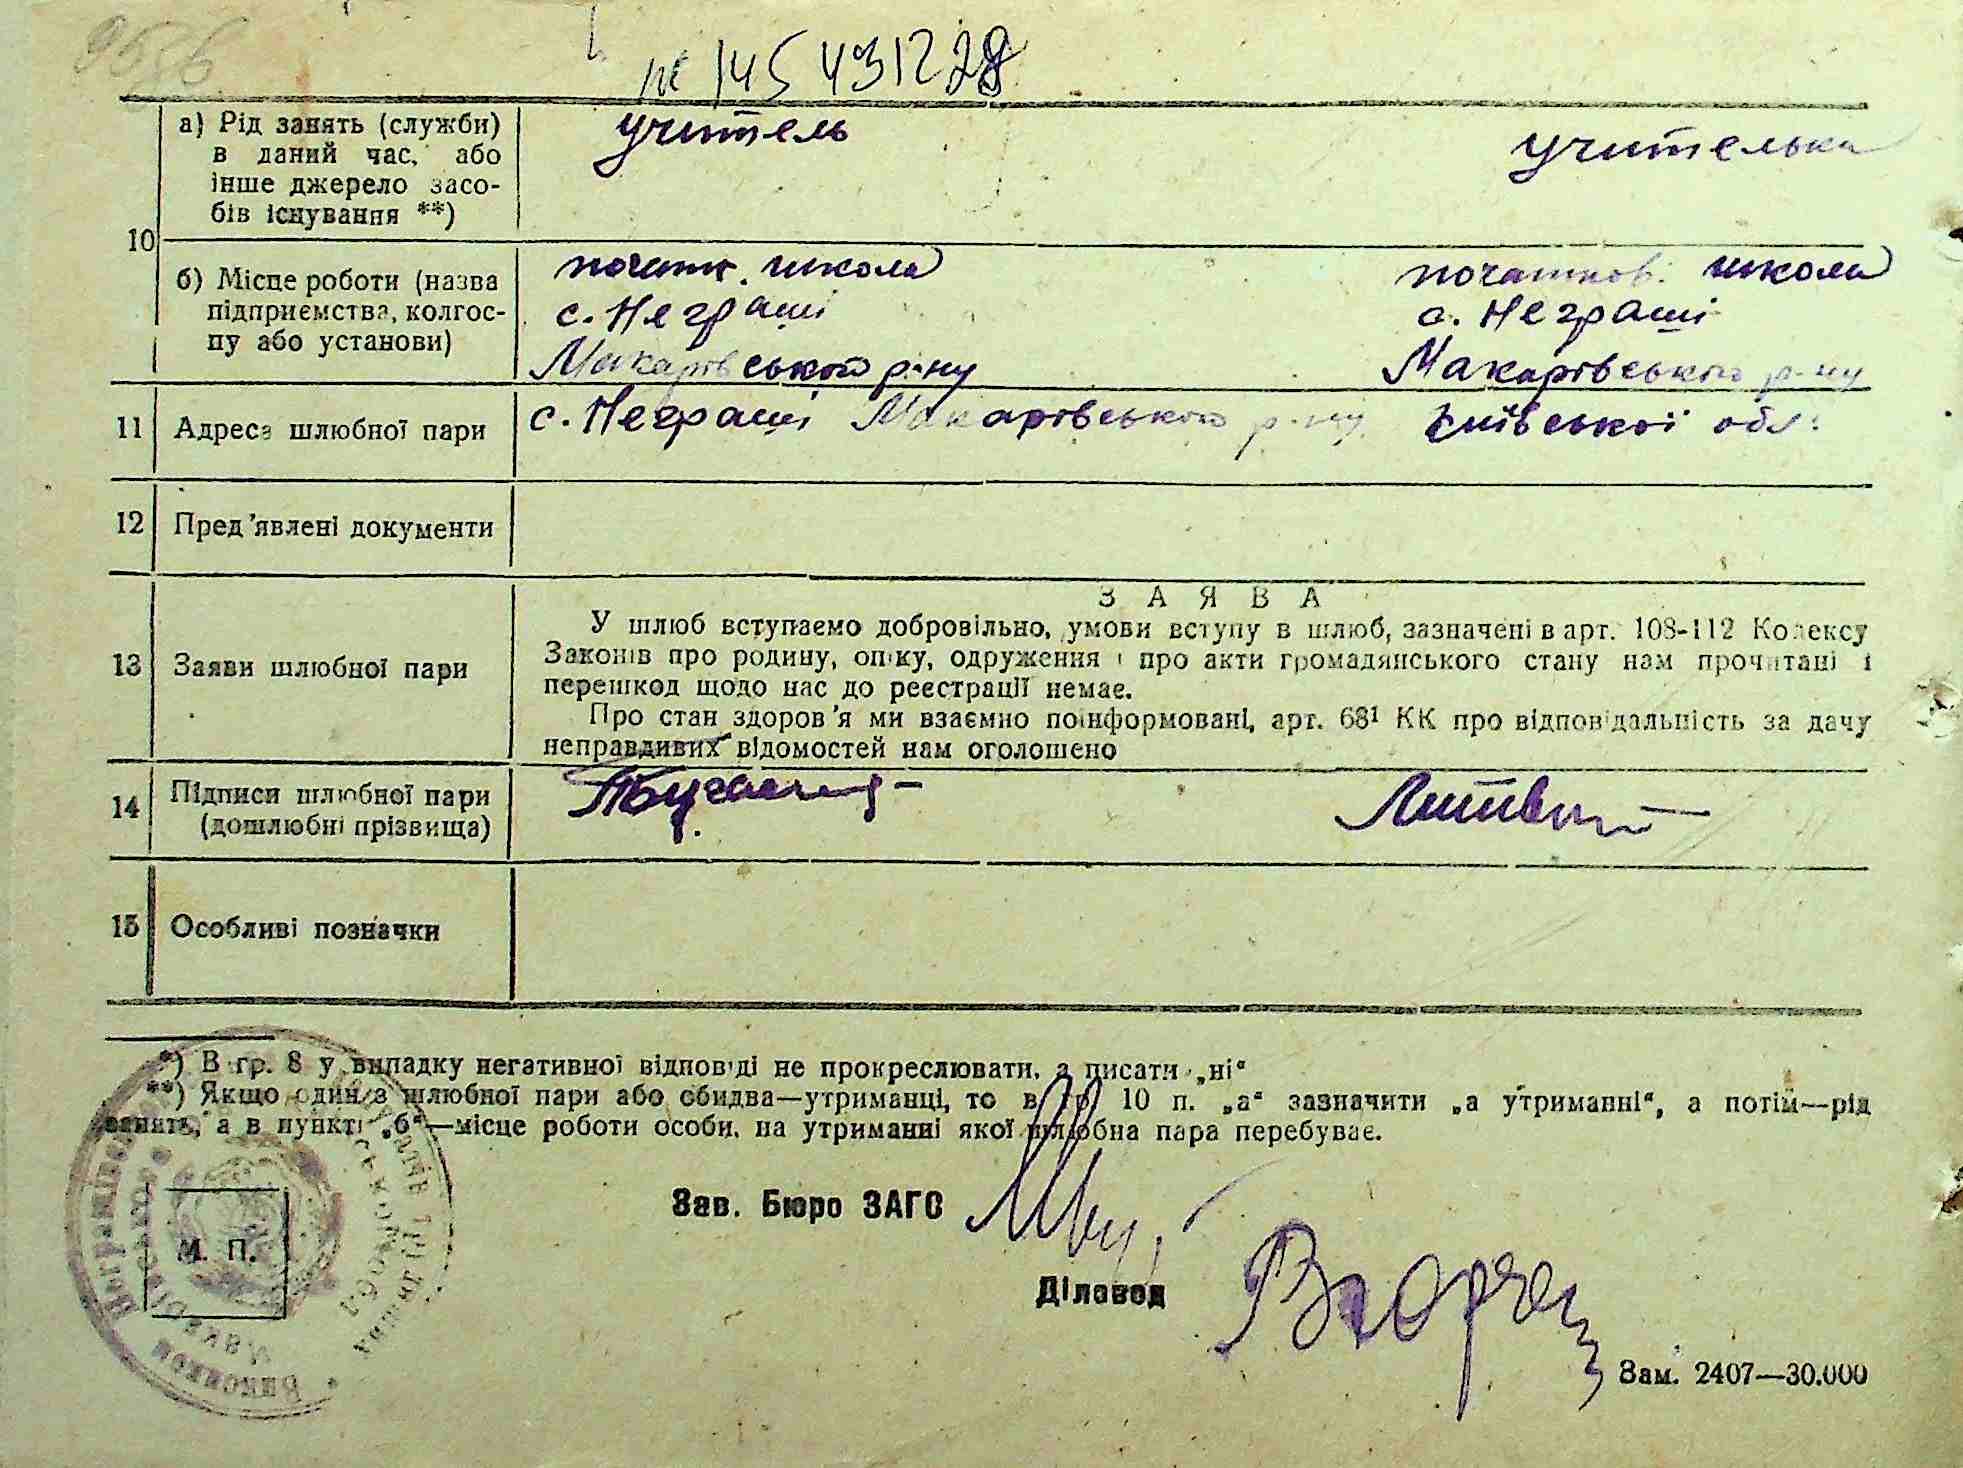 9586
№ 145431228
10
а) Рід занять (служби) в даний час, або інше джерело засобів існування **)
учитель
учителька
б) Місце роботи (назва підприємства, колгоспу або установи)
початк. школа
с. Неграші
Макарівського р-ну
початков. школа
с. Неграші
Макарівського р-ну
11 Адреса шлюбної пари
с. Неграші Макарівського р-ну Київської обл.
12 Пред'явлені документи
13 Заяви шлюбної пари
ЗАЯВА
У шлюб вступаємо добровільно, умови вступу в шлюб, зазначені в арт. 108-112 Кодексу
Законів про родину, опіку, одруження і про акти громадянського стану нам прочитані і
перешкод щодо нас до реєстрації немає.
Про стан здоров'я ми взаємно поінформовані, арт. 68¹ КК про відповідальність за дачу
неправдивих відомостей нам оголошено
14 Підписи шлюбної пари
(дошлюбні прізвища)
Литвин
15 Особливі позначки
*) В гр. 8 у випадку негативної відповіді не прокреслювати, а писати „ні“
**) Якщо один з шлюбної пари або обидва—утриманці, то в гр. 10 п. „а“ зазначити „а утриманні“, а потім—рід
занять, а в пункті „б“—місце роботи особи, на утриманні якої шлюбна пара перебуває.
М. П.
Зав. Бюро ЗАГС
Діловод
Зам. 2407—30.000